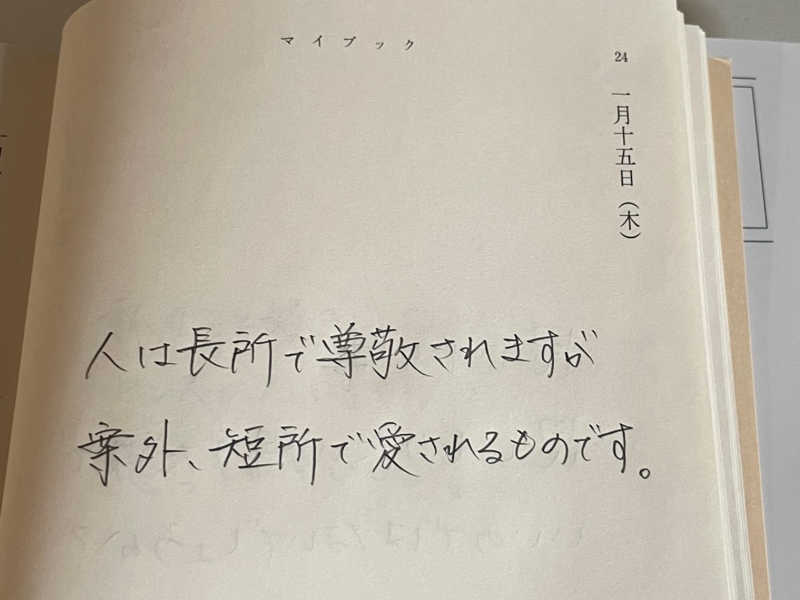 マイブック
24
一月十五日(木)
人は長所で尊敬されますが
案外、短所で愛されるものです。